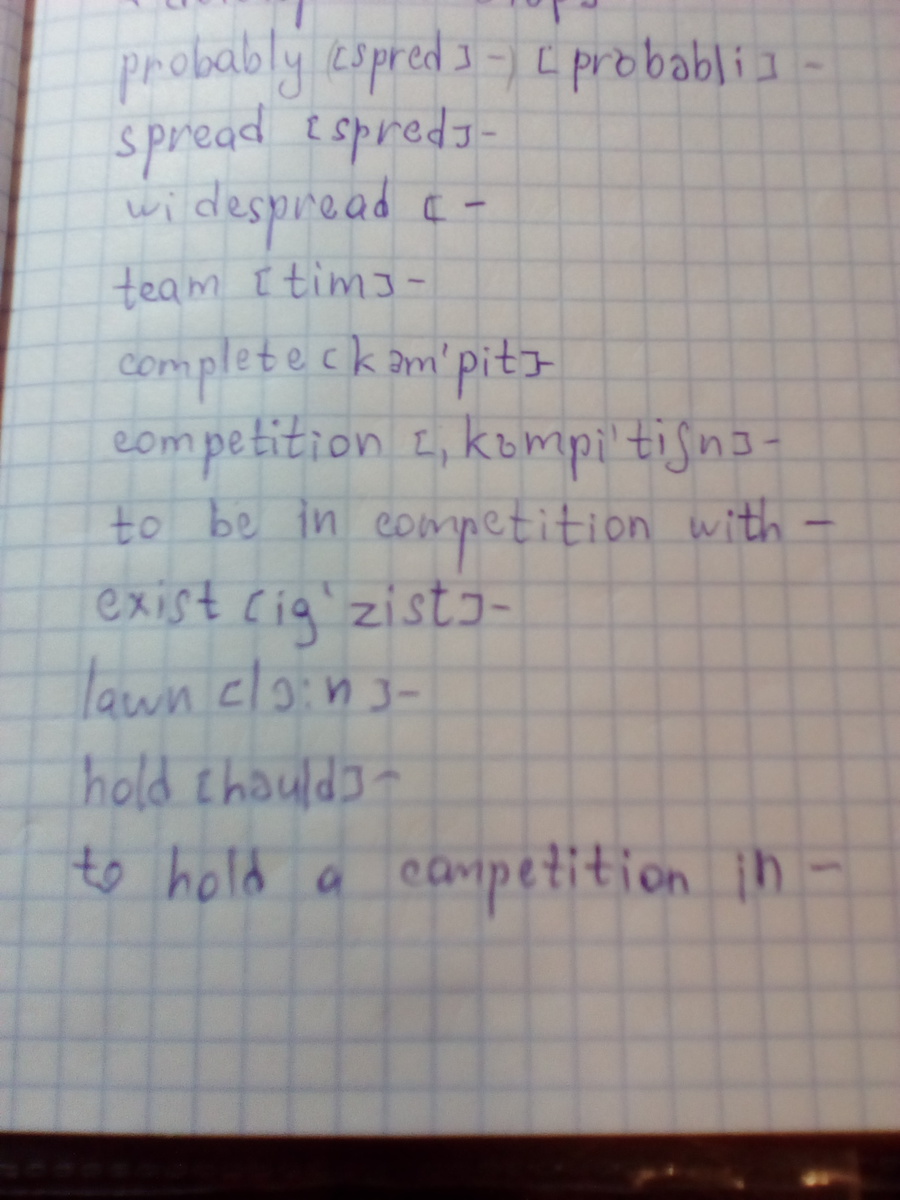 probably ([spred] -) [probəbli] -
spread [spred] -
widespread [ -
team [tim] -
complete [kəm'pit] -
competition [ˌkɔmpi'tiʃn] -
to be in competition with -
exist [ig'zist] -
lawn [lɔ:n] -
hold [hould] -
to hold a canpetition in -